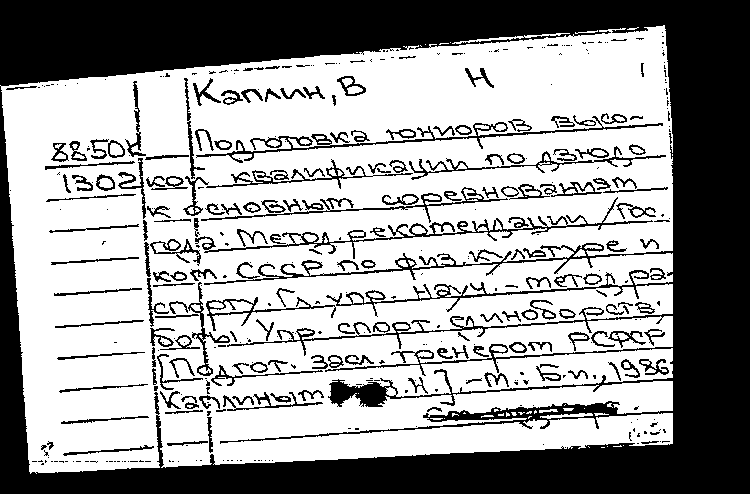 Каплин, В Н 1
Подготовка юниоров высо-
88.50К
1302 кой квалификации по дзюдо
к основным соревнованиям
года: Метод. рекомендации / Гос.
ком. СССР по физ. культуре и
спорту. Гл. упр. науч.-метод. ра-
боты. Упр. спорт. единоборств;
[Подгот. засл. тренером РСФСР
Каплиным В.Н.].-М.: Б.и., 1986.